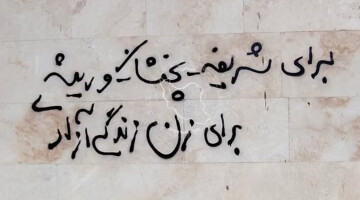 برای شریفه_پخشان_وریشه
برای زن زندگی آزادی